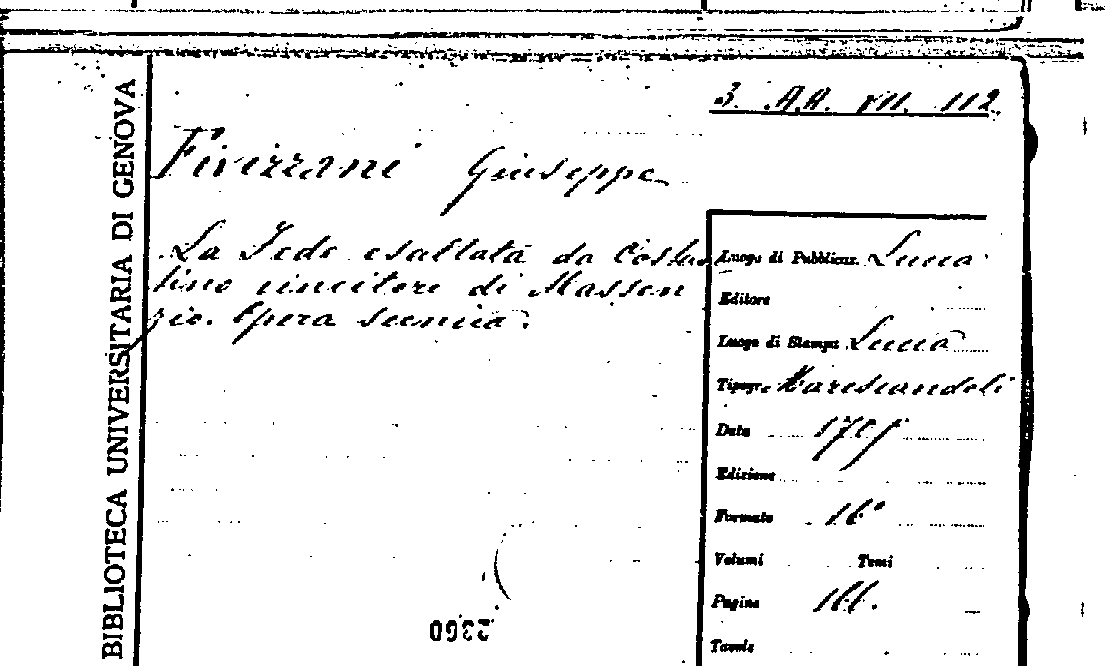 BIBLIOTECA UNIVERSITARIA DI GENOVA
3. A.A. VII. 112
Fivizzani Giuseppe
La Fede esaltata da Costan
tino vincitore di Massen
zio. Opera scenica.
Luogo di Pubblicaz. Lucca
Editore
Luogo di Stampa Lucca
Tipogr. Marescandoli
Data
Edizione
Formato 16°
Volumi Tomi
Pagine 166.
Tavole
2360